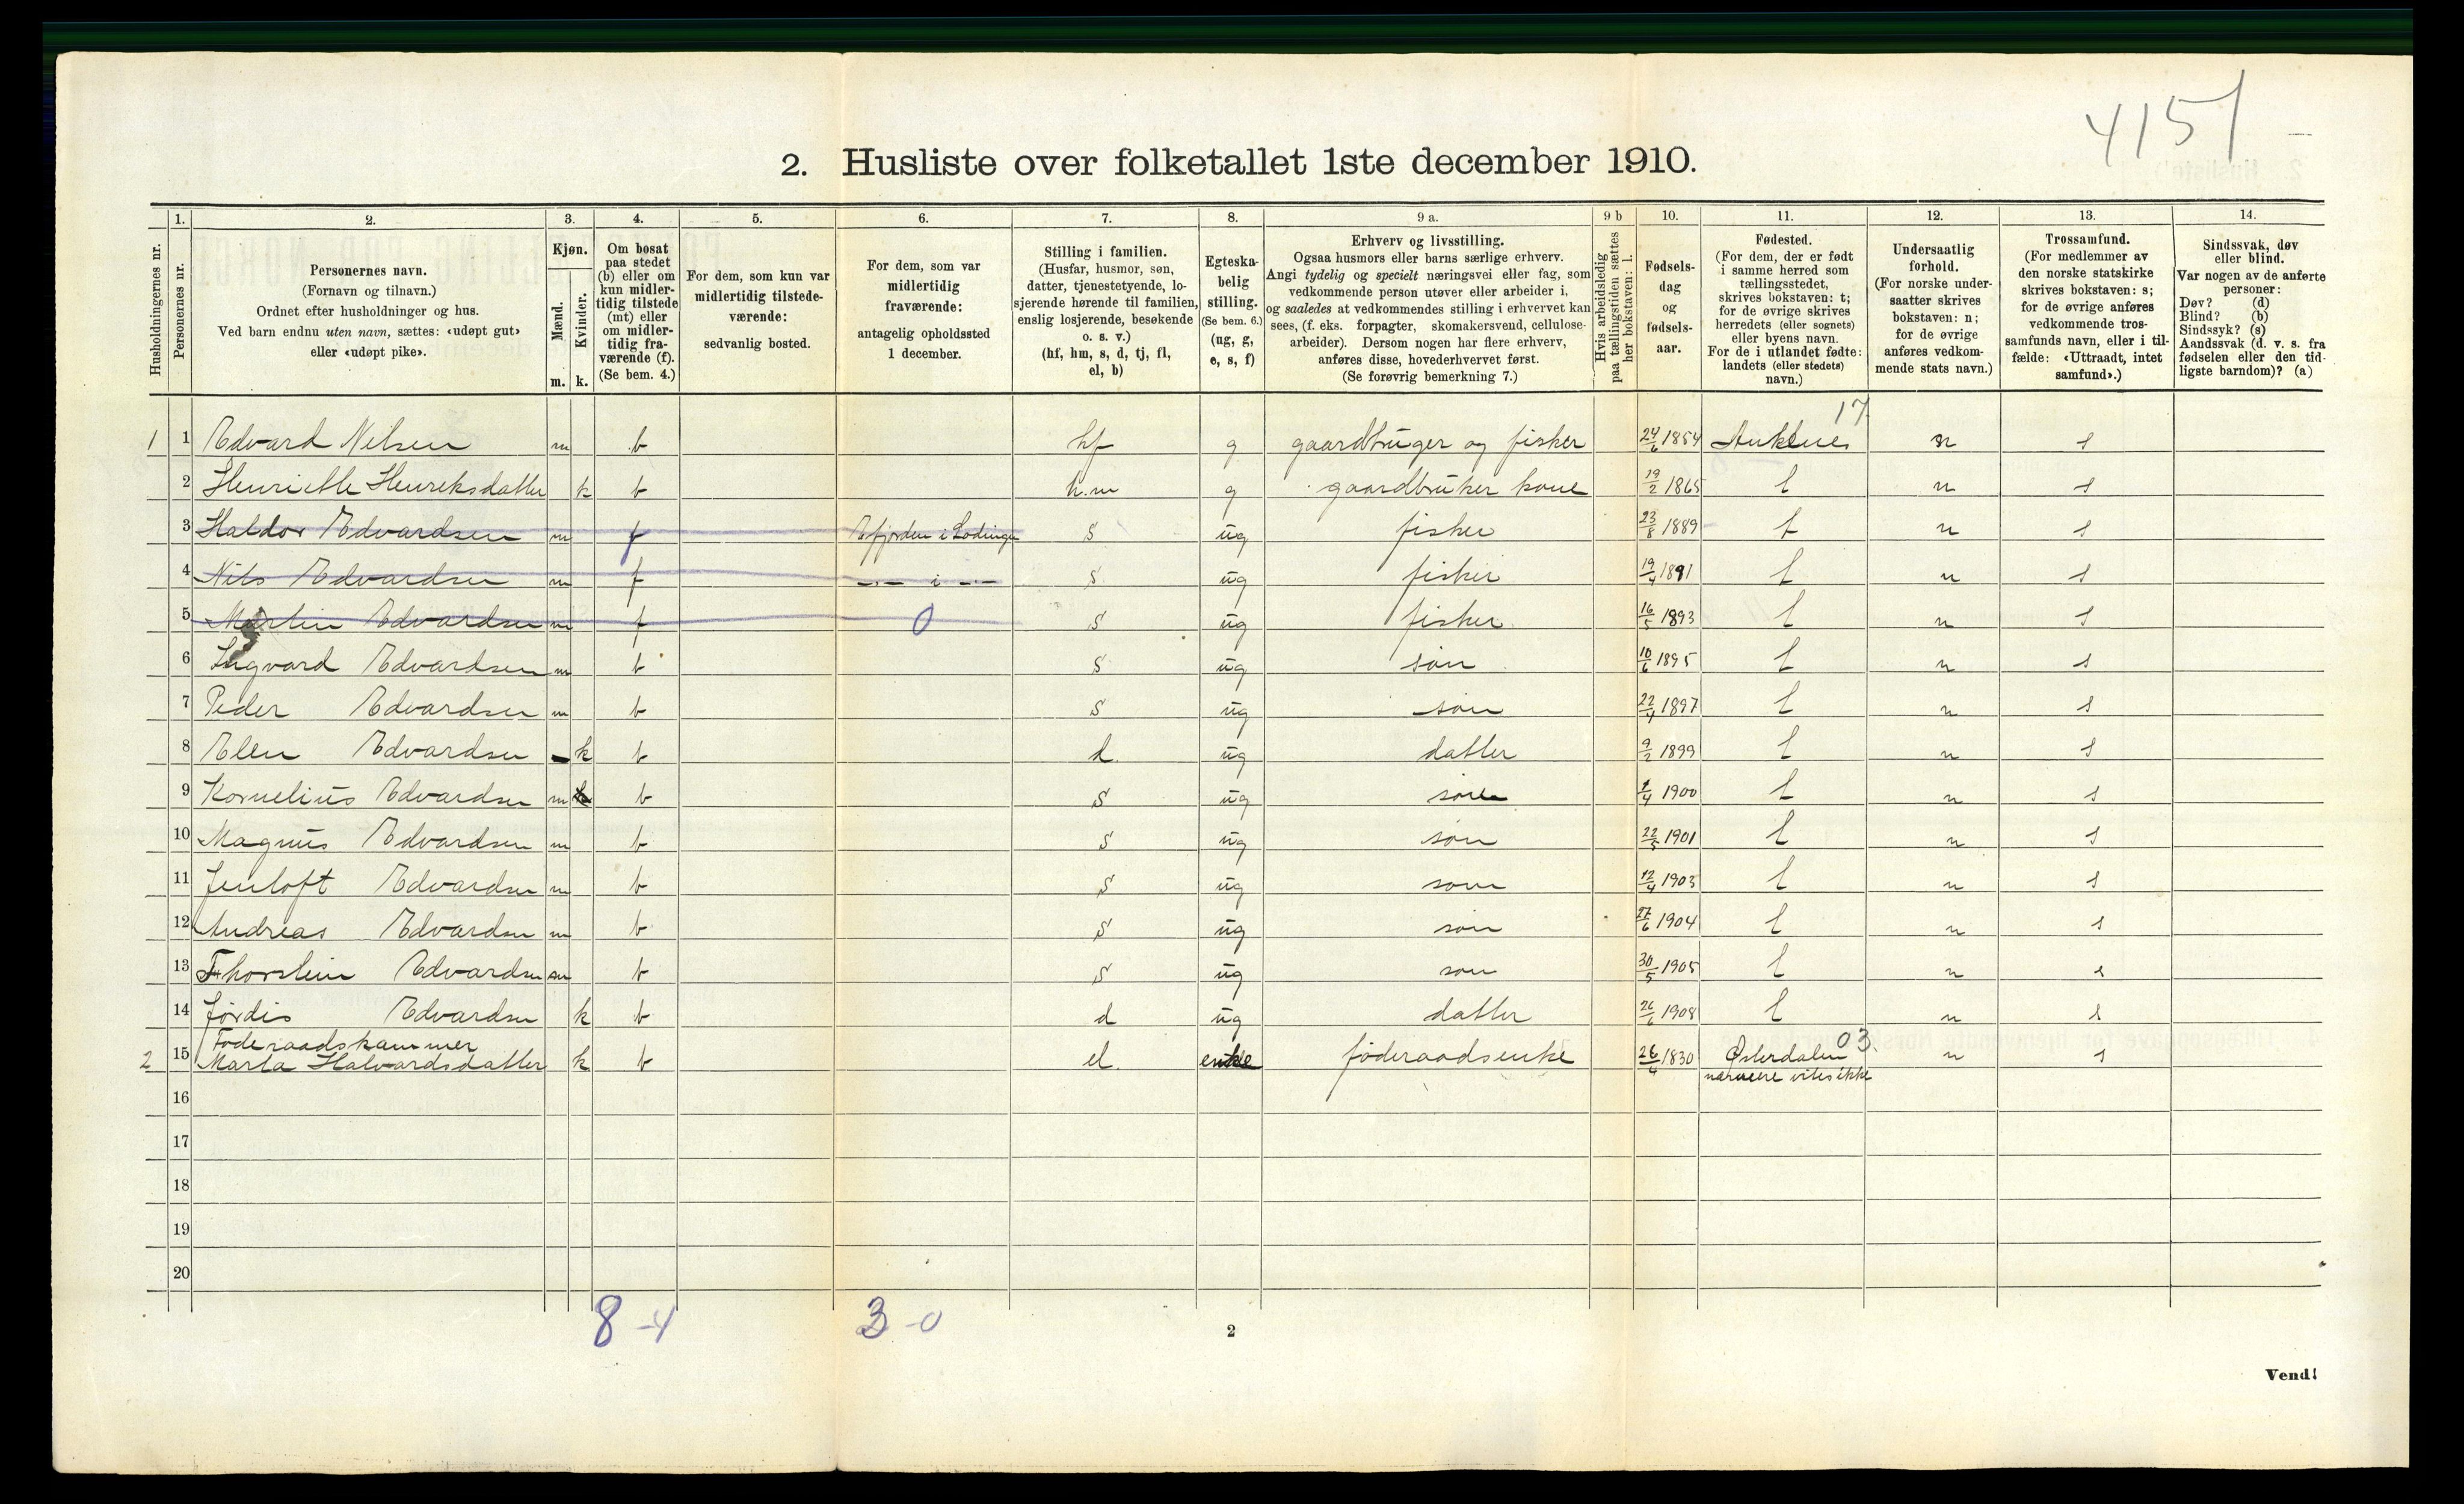 4151 –
2. Husliste over folketallet 1ste december 1910.
Husholdningernes nr.
1. Personernes nr.
2. Personernes navn. (Fornavn og tilnavn.) Ordnet efter husholdninger og hus. Ved barn endnu uten navn, sættes: «udøpt gut» eller «udøpt pike».
3. Kjøn. Mænd. m. Kvinder. k.
4. Om bosat paa stedet (b) eller om kun midlertidig tilstede (mt) eller om midlertidig fraværende (f). (Se bem. 4.)
5. For dem, som kun var midlertidig tilstedeværende: sedvanlig bosted.
6. For dem, som var midlertidig fraværende: antagelig opholdssted 1 december.
7. Stilling i familien. (Husfar, husmor, søn, datter, tjenestetyende, losjerende hørende til familien, enslig losjerende, besøkende o. s. v.) (hf, hm, s, d, tj, fl, el, b)
8. Egteskabelig stilling. (Se bem. 6.) (ug, g, e, s, f)
9 a. Erhverv og livsstilling. Ogsaa husmors eller barns særlige erhverv. Angi tydelig og specielt næringsvei eller fag, som vedkommende person utøver eller arbeider i, og saaledes at vedkommendes stilling i erhvervet kan sees, (f. eks. forpagter, skomakersvend, cellulosearbeider). Dersom nogen har flere erhverv, anføres disse, hovederhvervet først. (Se forøvrig bemerkning 7.)
9 b Hvis arbeidsledig paa tællingstiden sættes her bokstaven: l.
10. Fødselsdag og fødselsaar.
11. Fødested. (For dem, der er født i samme herred som tællingsstedet, skrives bokstaven: t; for de øvrige skrives herredets (eller sognets) eller byens navn. For de i utlandet fødte: landets (eller stedets) navn.)
12. Undersaatlig forhold. (For norske undersaatter skrives bokstaven: n; for de øvrige anføres vedkommende stats navn.)
13. Trossamfund. (For medlemmer av den norske statskirke skrives bokstaven: s; for de øvrige anføres vedkommende trossamfunds navn, eller i tilfælde: «Uttraadt, intet samfund».)
14. Sindssvak, døv eller blind. Var nogen av de anførte personer: Døv? (d) Blind? (b) Sindssyk? (s) Aandssvak (d. v. s. fra fødselen eller den tidligste barndom)? (a)
17
1 1 Edvard Nilsen m b hf g gaardbruger og fisker 24/6 1854 n s
2 Henriette Henreksdatter k b h.m g gaardbruker kone 19/2 1865 t n s
3 Haldor Edvardsen m f Efjorden i Lodingen s ug fisker 23/8 1889 t n s
4 Nils Edvardsen m f –·– i –·– s ug fisker 19/4 1891 t n s
5 Martin Edvardsen m f 0 s ug fisker 16/5 1893 t n s
6 Ingvard Edvardsen m b s ug søn 10/6 1895 t n s
7 Peder Edvardsen m b s ug søn 22/4 1897 t n s
8 Ellen Edvardsen k b d. ug datter 9/2 1899 t n s
9 Kornelius Edvardsen m b s ug søn 1/4 1900 t n s
10 Magnus Edvardsen m b s ug søn 22/5 1901 t n s
11 Jenloft Edvardsen m b s ug søn 12/4 1903 t n s
12 Andreas Edvardsen m b s ug søn 27/6 1904 t n s
13 Thorstein Edvardsen m b s ug søn 30/5 1905 t n s
14 Jørdis Edvardsen k b d ug datter 26/6 1908 t n s
Føderaadskammer 03.
2 15 Marta Halvardsdatter k b el. enke føderaadsenke 26/4 1830 Østerdalen n s
nærmere vites ikke
16
17
18
19
20
8 – 4 3 – 0
2
Vend!